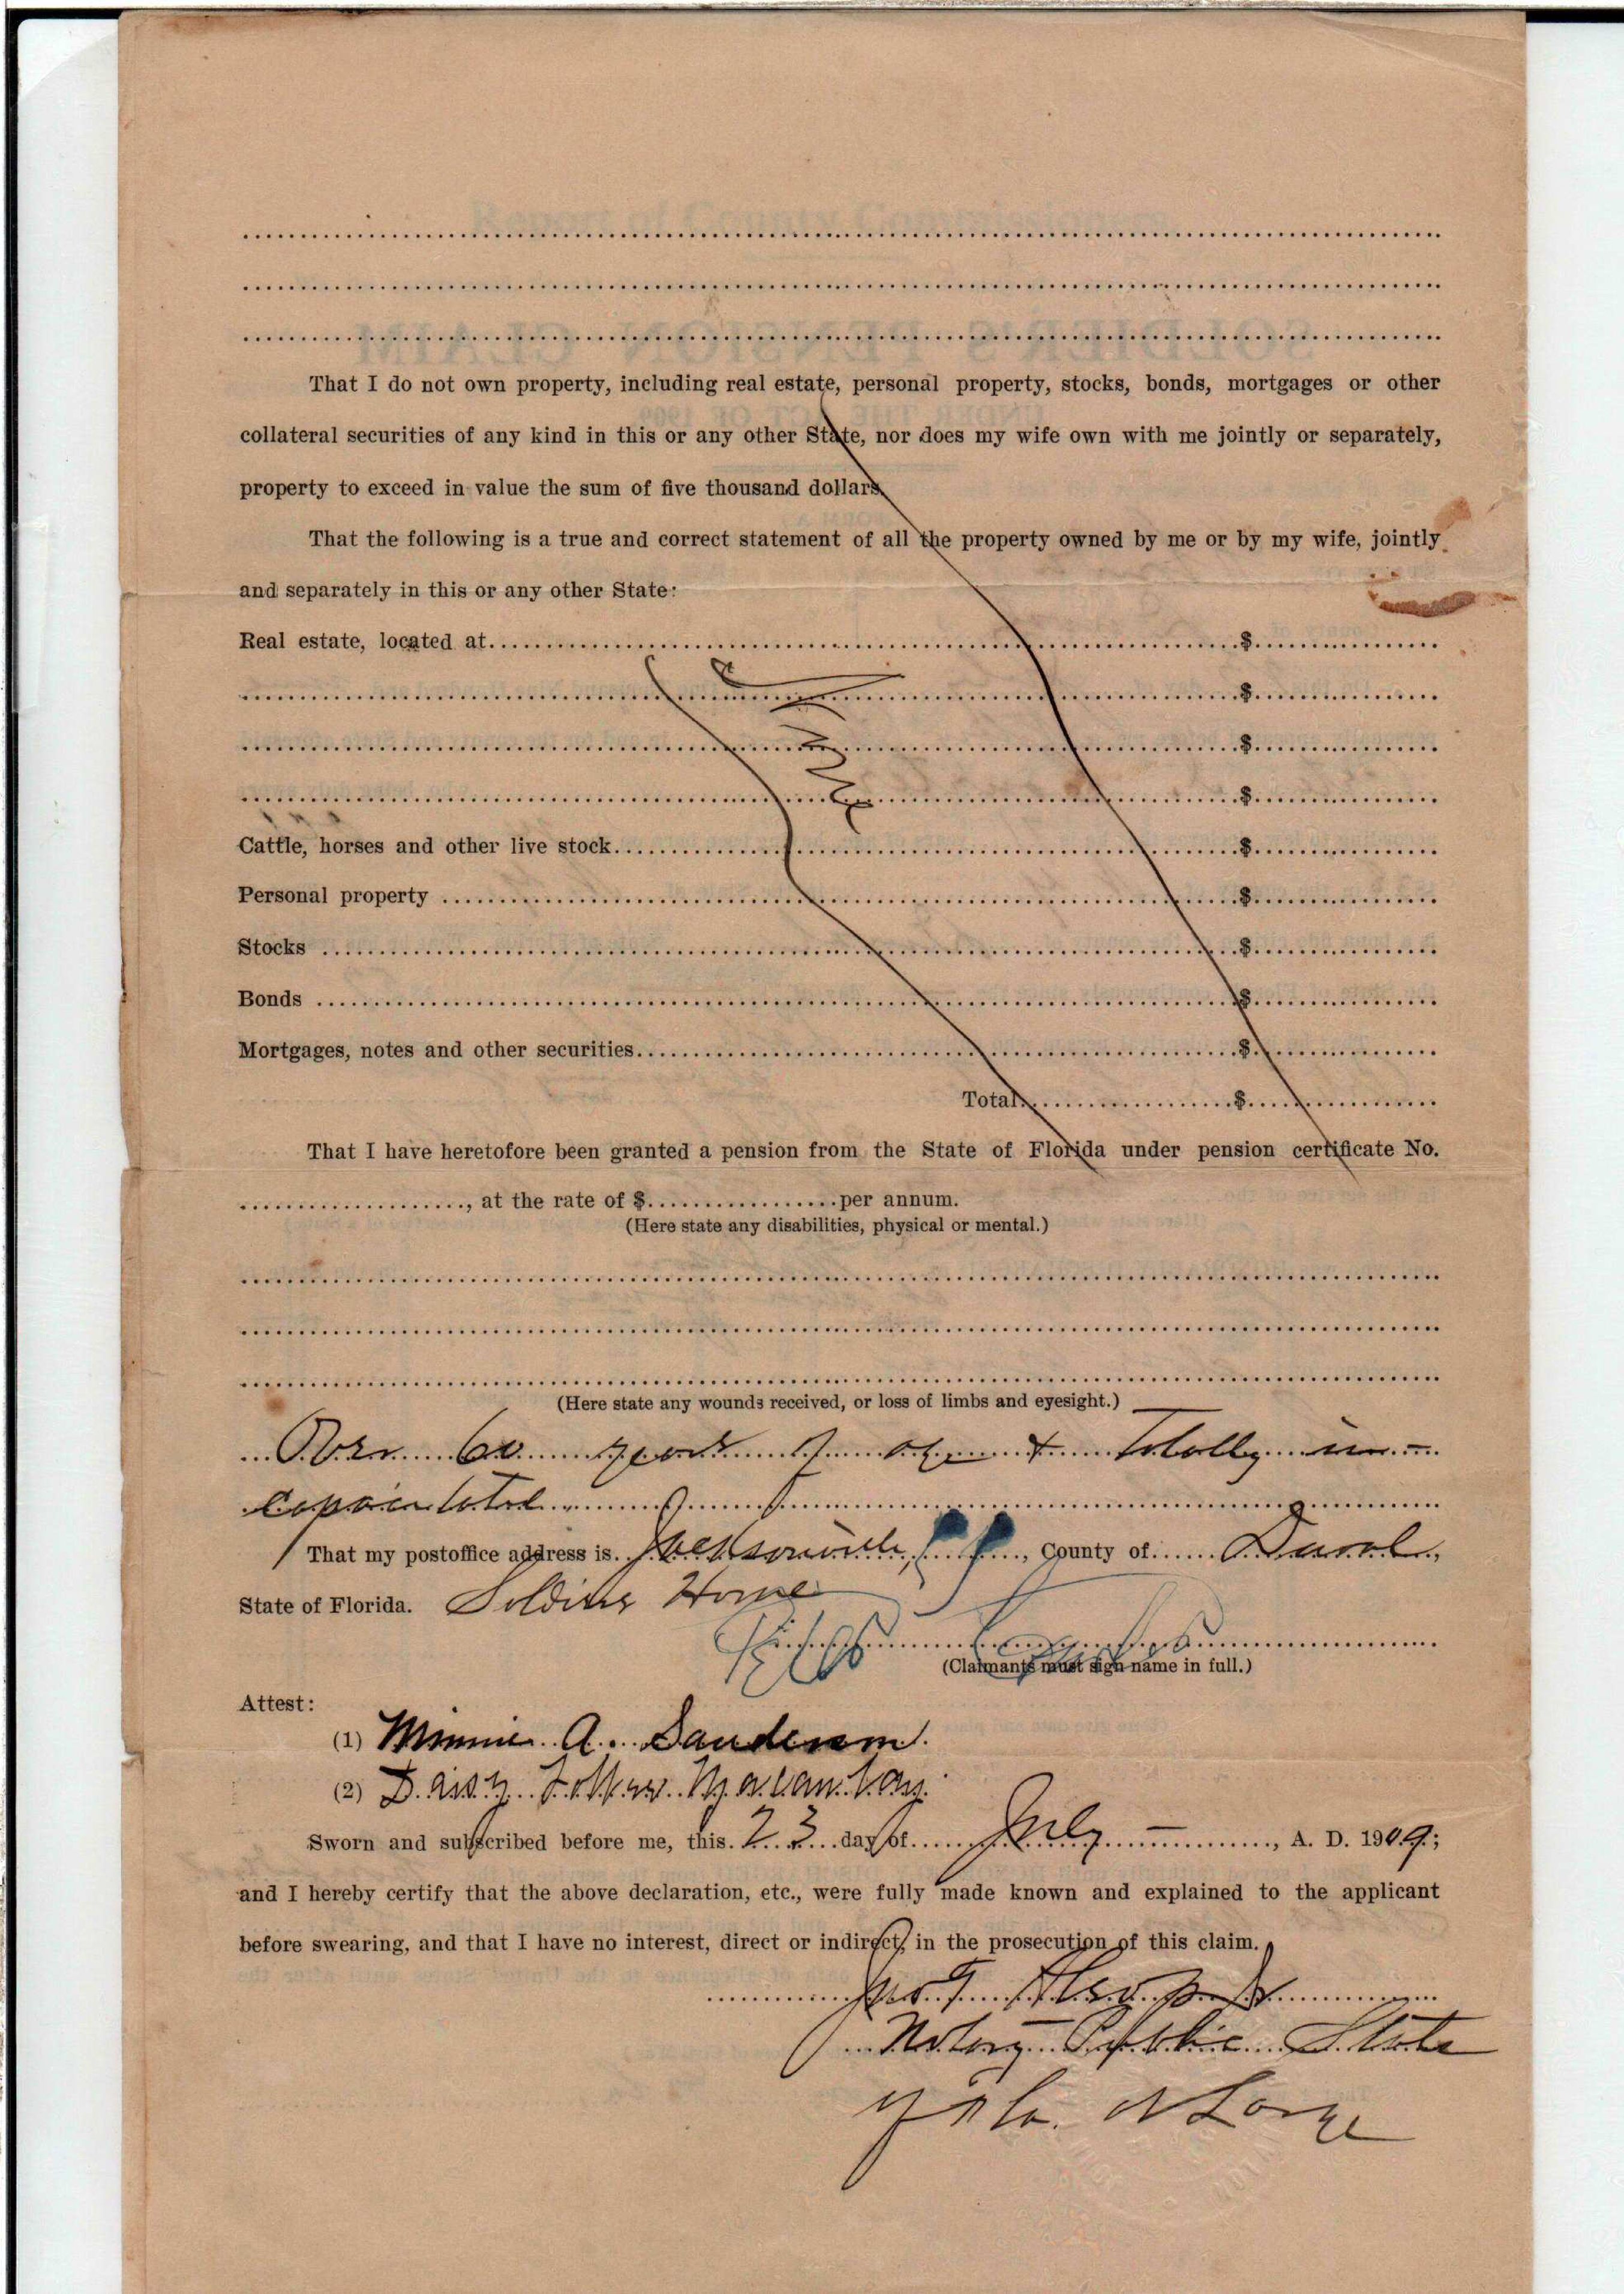 That I do not own property, including real estate, personal property, stocks, bonds, mortgages or other
collateral securities of any kind in this or any other State, nor does my wife own with me jointly or separately,
property to exceed in value the sum of five thousand dollars.
That the following is a true and correct statement of all the property owned by me or by my wife, jointly
and separately in this or any other State:
Real estate, located at $
$
$
$
Cattle, horses and other live stock $
Personal property $
Stocks $
Bonds $
Mortgages, notes and other securities $
Total $
That I have heretofore been granted a pension from the State of Florida under pension certificate No.
, at the rate of $ per annum.
(Here state any disabilities, physical or mental.)
(Here state any wounds received, or loss of limbs and eyesight.)
Over 60 years of age & Totally in-
capacitated
That my postoffice address is Jacksonville, County of Duval,
State of Florida. Soldiers Home
(Claimants must sign name in full.)
Attest:
(1) Minnie A. Sanderson.
(2) Daisy
Sworn and subscribed before me, this 23 day of July, A. D. 1909;
and I hereby certify that the above declaration, etc., were fully made known and explained to the applicant
before swearing, and that I have no interest, direct or indirect, in the prosecution of this claim.
Notary Public State
of Fla. at Large